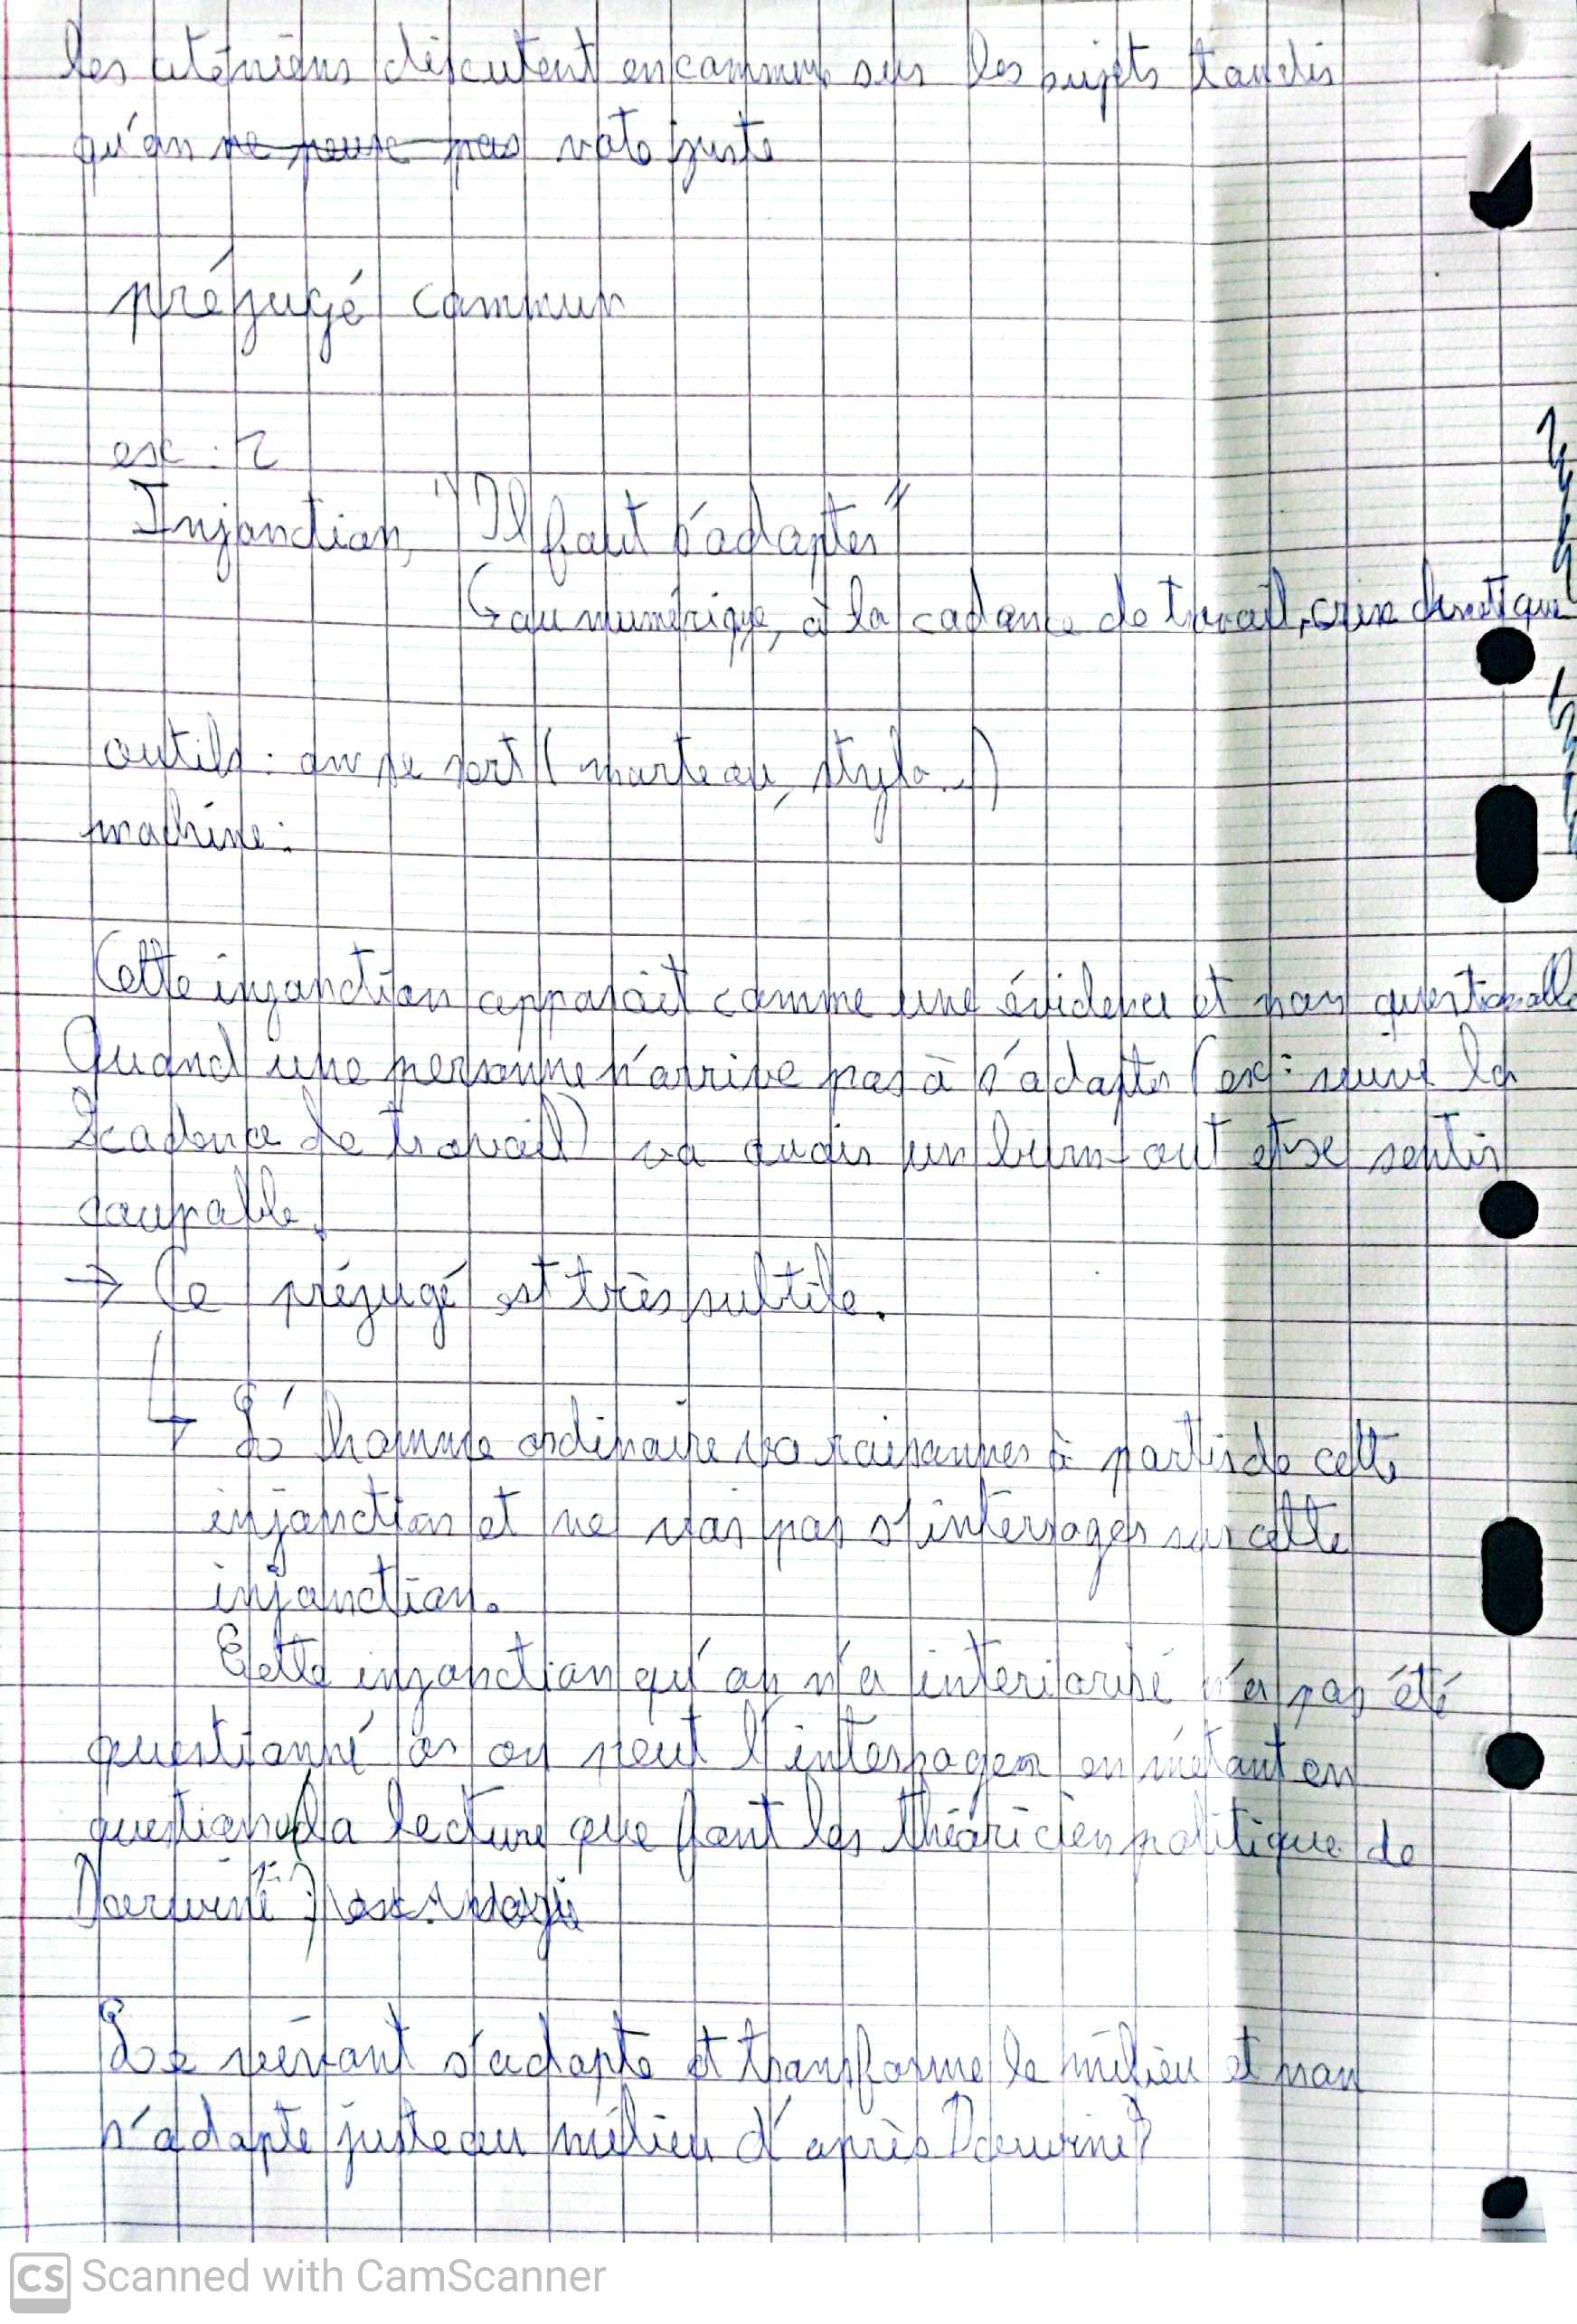 les aténiens discutent en commun sur les sujets tandis
qu'on ne peuse pas vote juste
préjugé commun
ex : 2
Injonction, "Il faut s'adapter"
↳ au numérique, à la cadance de travail, crise climatique
outils : on se sert (marteau, stylo...)
machine :
Cette injonction apparait comme une évidence et non questionable
Quand une personne n'arrive pas à s'adapter (ex : suivre la
cadence de travail) va avoir un burn-out et se sentir
coupable.
→ Ce préjugé est très subtile.
↳ L'homme ordinaire va raisonner à partir de cette
injonction et ne vas pas s'interroger sur cette
injonction.
Cette injonction qu'on n'a interiorisé n'a pas été
questionné or on peut l'interroger en métant en
question la lecture que font les théoricien politique de
Darwin
Le vivant s'adapte et transforme le milieu et non
s'adapte juste au milieu d'après Darwine?
Scanned with CamScanner